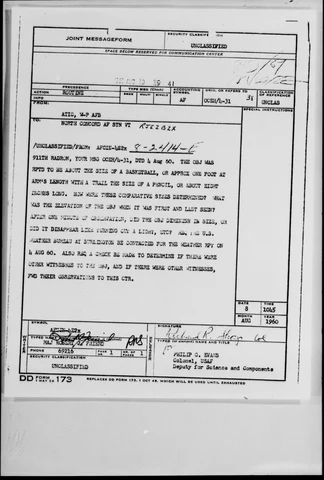 JOINT MESSAGEFORM
SECURITY CLASSIFICATION
UNCLASSIFIED
SPACE BELOW RESERVED FOR COMMUNICATION CENTER
41
PRECEDENCE
TYPE MSG (Check)
ACCOUNTING SYMBOL
ORIG. OR REFERS TO
CLASSIFICATION OF REFERENCE
ACTION
ROUTINE
BOOK
MULTI
SINGLE
AF
OCEH/4-31
UNCLAS
INFO
FROM: ATIC, W-P AFB
TO: NORTH CONCORD AF STN VT
/UNCLASSIFIED/FROM: AFCIN-4E2x 8-2414-E
911TH RADRON, YOUR MSG OCEH/4-31, DTD 4 AUG 60. THE OBJ WAS
RPTD TO BE ABOUT THE SIZE OF A BASKETBALL, OR APPROX ONE FOOT AT
ARM'S LENGTH WITH A TRAIL THE SIZE OF A PENCIL, OR ABOUT EIGHT
INCHES LONG. HOW WERE THESE COMPARATIVE SIZES DETERMINED? WHAT
WAS THE ELEVATION OF THE OBJ WHEN IT WAS FIRST AND LAST SEEN?
AFTER ONE MINUTE OF OBSERVATION, DID THE OBJ DIMINISH IN SIZE, OR
DID IT DISAPPEAR LIKE TURNING OUT A LIGHT, ETC? REQ THE U.S.
WEATHER BUREAU AT BURLINGTON BE CONTACTED FOR THE WEATHER RPT ON
4 AUG 60. ALSO REQ A CHECK BE MADE TO DETERMINE IF THERE WERE
OTHER WITNESSES TO THE OBJ, AND IF THERE WERE OTHER WITNESSES,
FWD THEIR OBSERVATIONS TO THIS CTR.
DATE
TIME
8
1045
MONTH
YEAR
AUG
1960
SYMBOL
AFCIN-4E2x
SIGNATURE
MAJ ROBERT J. FRIEND
PHONE
69216
PAGE NR.
1
NR. OF PAGES
1
SECURITY CLASSIFICATION
UNCLASSIFIED
PHILIP G. EVANS
Colonel, USAF
Deputy for Science and Components
DD FORM 173
1 MAY 55
REPLACES DD FORM 173, 1 OCT 49, WHICH WILL BE USED UNTIL EXHAUSTED